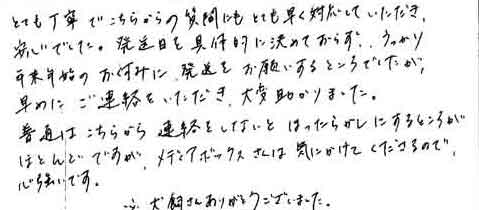 とても丁寧でこちらからの質問にもとても早く対応していただき、
安心でした。発送日を具体的に決めておらず、うっかり
年末年始のお休みに発送をお願いするところでしたが、
早めにご連絡をいただき、大変助かりました。
普通はこちらから連絡をしないとほったらかしにするところが
ほとんどですが、メディアボックスさんは気にかけてくださるので、
心強いです。
犬飼さんありがとうございました。